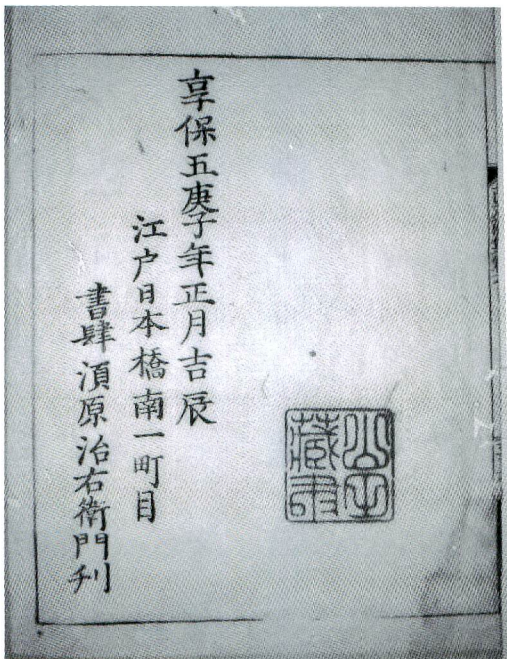 享保五庚子年正月吉辰
江户日本橋南一町目
書肆須原治右衛門刊
藏書